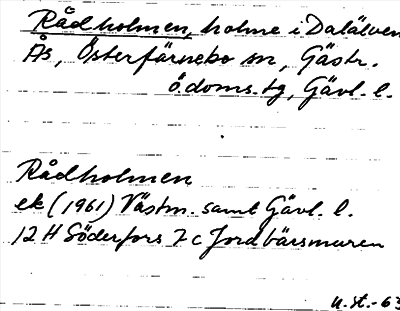 Rådholmen, holme i Dalälven
Ås, Österfärnebo sn, Gästr.
ö. doms. tg, Gävl. l.
Rådholmen
ek (1961) Västm. samt Gävl. l.
12 H Söderfors 7 c Jordbärsmuren
U. St. - 63